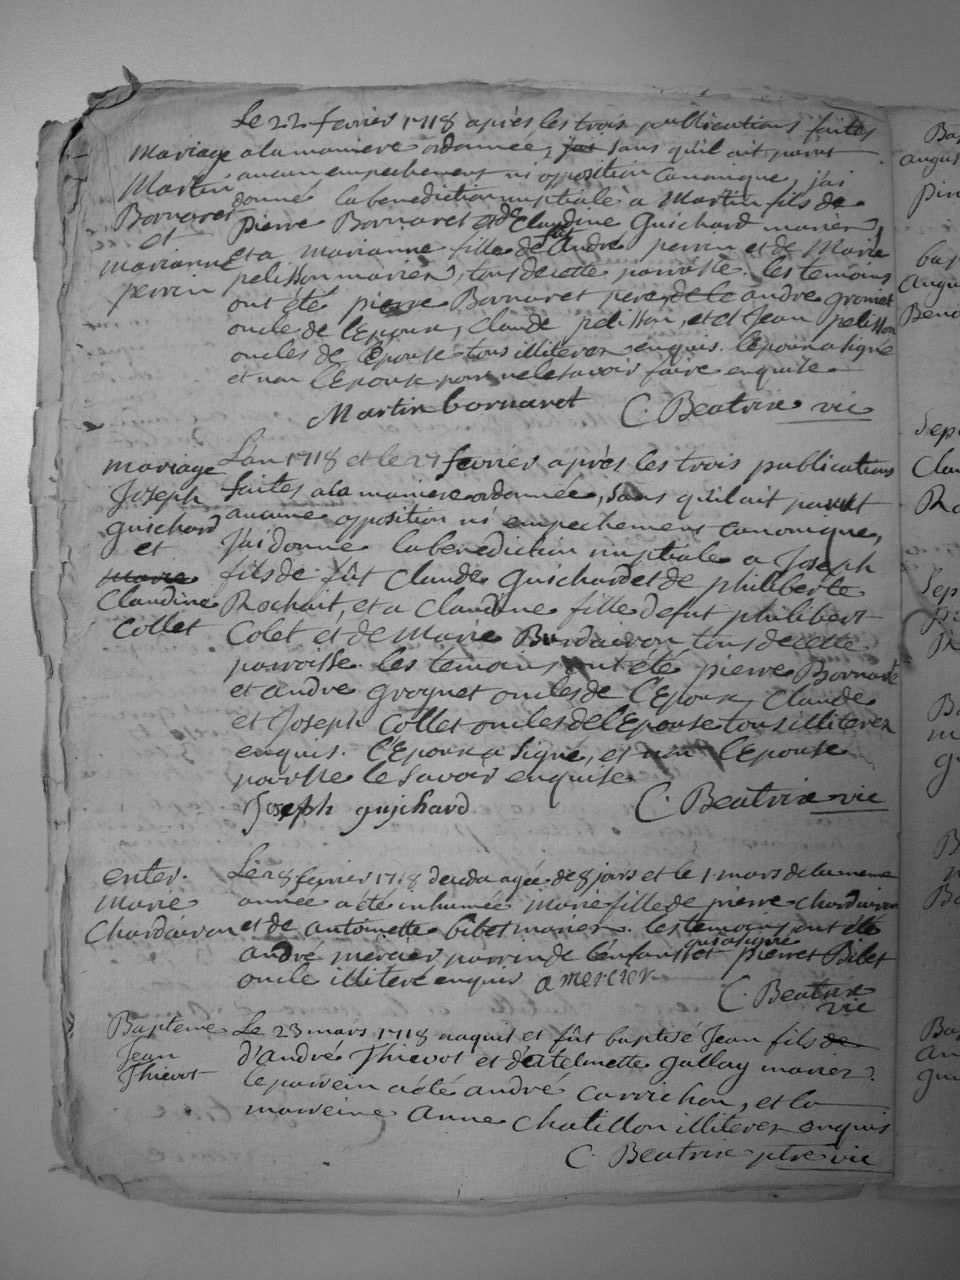 Le 22 fevrier 1718 après les trois publications faites
Mariage
Martin
Bornaret
et
Marianne
perrin
a la maniere ordonnée, sans qu'il ait parut
aucun empechement ni opposition Canonique, j'ai
donné la benediction nuptiale a Martin fils de
pierre Bornaret et de Claudine Guichard mariez,
et a marianne fille de André perrin et de Marie
pelisson mariez, tous de cette parroisse. les temoins
ont été pierre Bornaret pere, andre grosnet
oncle de l'Epoux, Claude pelisson, et Jean pelisson
oncles de l'Epouse tous illiterez enquis. l'epoux a signé
et non l'Epouse pour ne le savoir faire enquise
Martin bornaret C. Beatrix vic
mariage
Joseph
guichard
et
Marie
Claudine
Collet
L'an 1718 et le 27 fevrier après les trois publications
faites a la maniere ordonnée, sans qu'il ait parut
aucune opposition ni empechement canonique,
J'ai donné la benediction nuptiale a Joseph
fils de fût Claude Guichard et de philiberte
Rochait, et a Claudine fille de fut philibert
Colet et de Marie Burdairon, tous de cette
parroisse. les temoins ont été pierre Bornaret
et andre grognet oncles de l'Epoux, Claude
et Joseph Collet oncles de l'Epouse tous illiterez
enquis. l'Epoux a signé, et non l'Epouse
pour ne le savoir enquise
Joseph guijhard C. Beatrix vic
enter.
Marie
Chardairon
Le 28 fevrier 1718 deceda agée de 8 jours et le 1 mars de la meme
année a été inhumée Marie fille de pierre Chardairon
et de antoinette bibet mariez. les temoins ont été
andré mercier parrin de l'enfant qui a signé et pierre Bibet
oncle illiteré enquis a mercier
C. Beatrix
vic
Bapteme
Jean
Thievot
Le 23 mars 1718 naquit et fût baptisé Jean fils de
d'andré Thievot et d'Etelmette gallay mariez.
le parrein a été andré Carrichon, et la
marreine Anne Chatillon illiterez enquis
C. Beatrix ptre vic